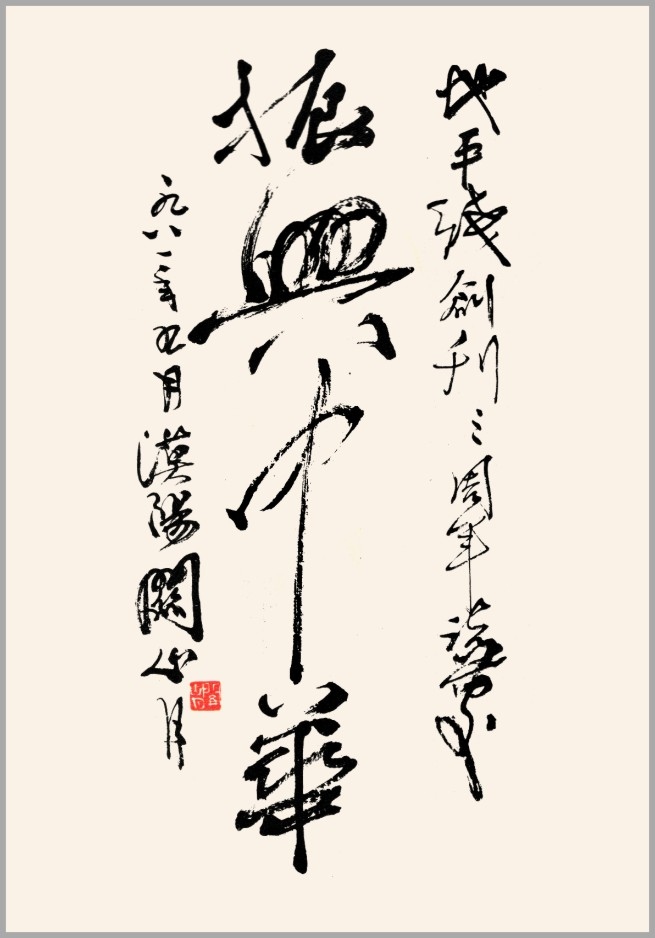 地平綫創刊三周年誌慶
振興中華
一九八一年九月漠陽關山月